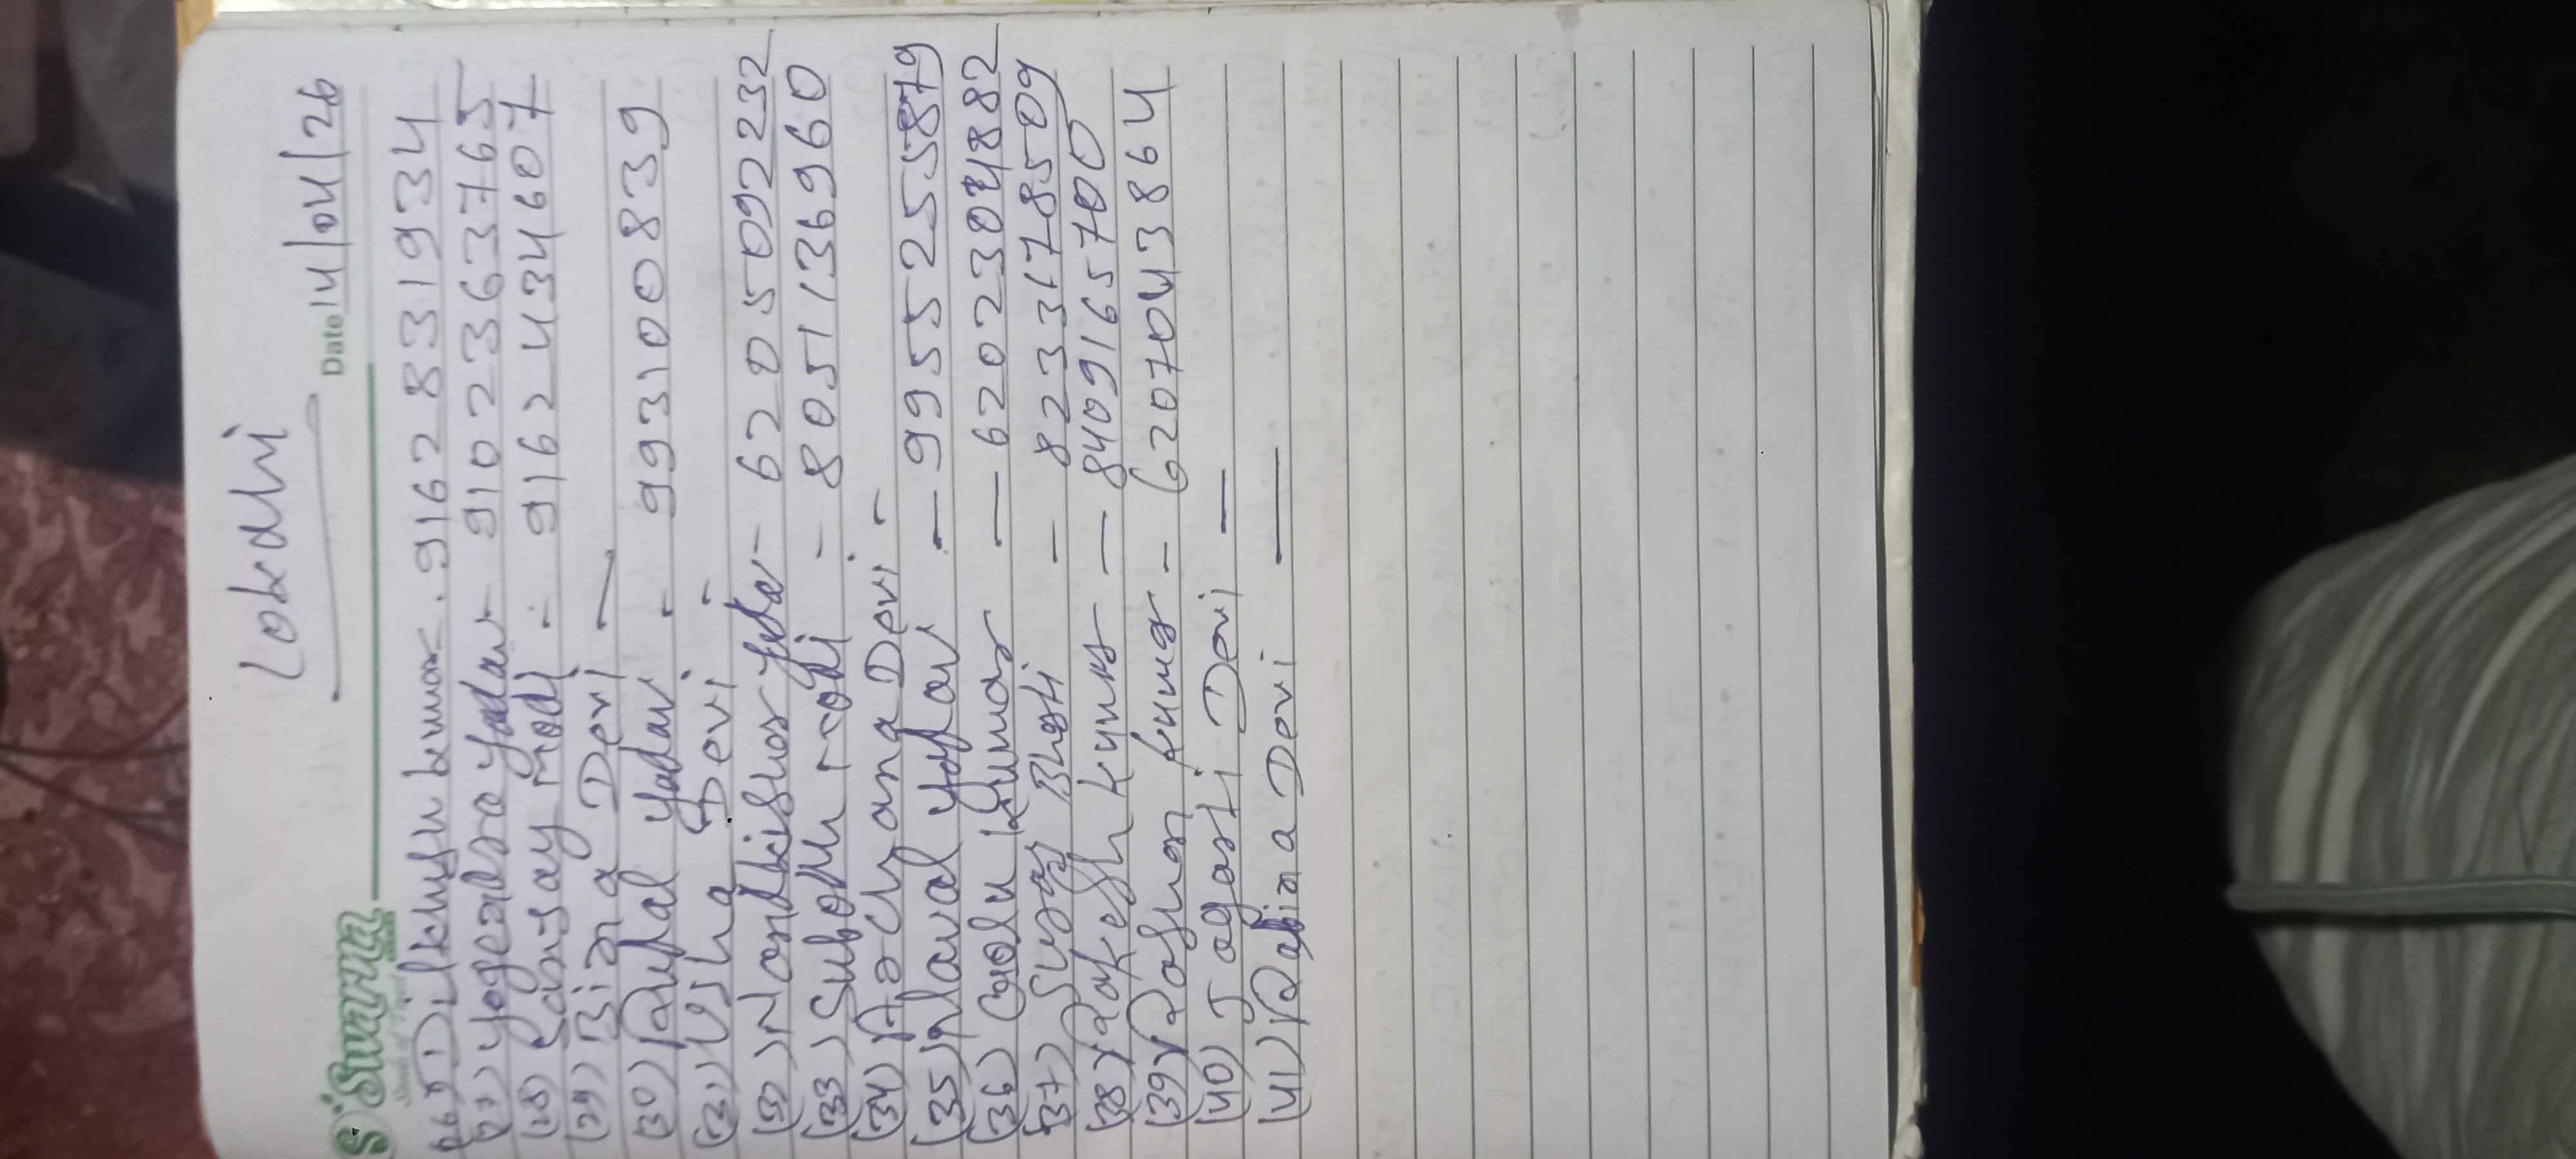 Lokahi
Date 14/04/26
Suvarna
(26) Dilkhush kumar - 9162831934
(27) Yogendra Yadav - 9102363765
(28) Sanjay modi - 9162434607
(29) Bina Devi -
(30) Rupal Yadav - 9931008839
(31) Usha Devi -
(32) Nandkishor Yadav - 6205092232
(33) Subodh modi - 8051136960
(34) Archana Devi -
(35) Naval Yadav - 9955255879
(36) Golu Kumar - 6202304882
(37) Suraj Bharti - 8233678509
(38) Rakesh Kumar - 8409165700
(39) Roshan Kumar - 6207043864
(40) Jagarti Devi -
(41) Rabina Devi -